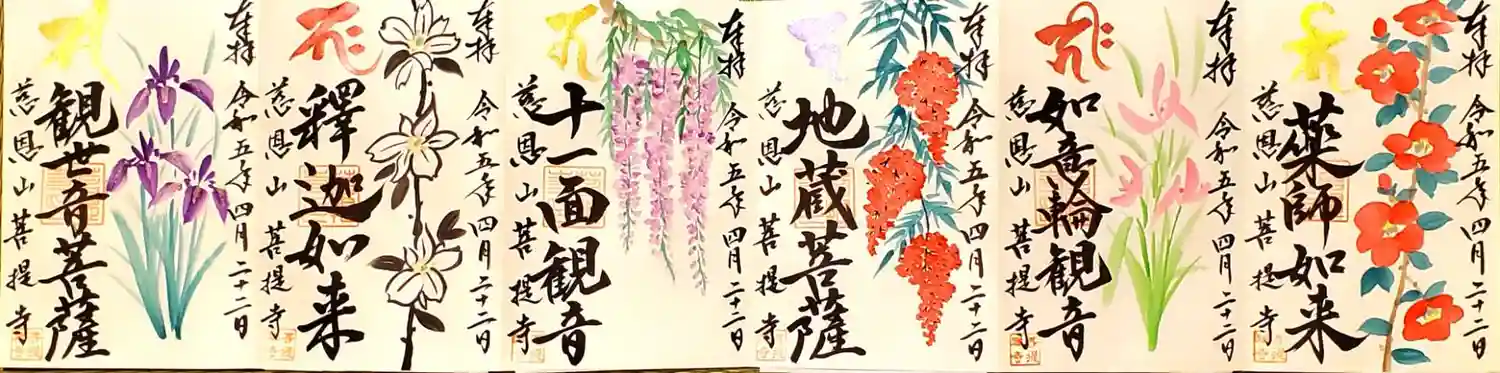 奉拝
令和五年四月二十二日
観世音菩薩
慈恩山菩提寺
奉拝
令和五年四月二十二日
釋迦如来
慈恩山菩提寺
奉拝
令和五年四月二十二日
十一面観音
慈恩山菩提寺
奉拝
令和五年四月二十二日
地蔵菩薩
慈恩山菩提寺
奉拝
令和五年四月二十二日
如意輪観音
慈恩山菩提寺
奉拝
令和五年四月二十二日
薬師如来
慈恩山菩提寺